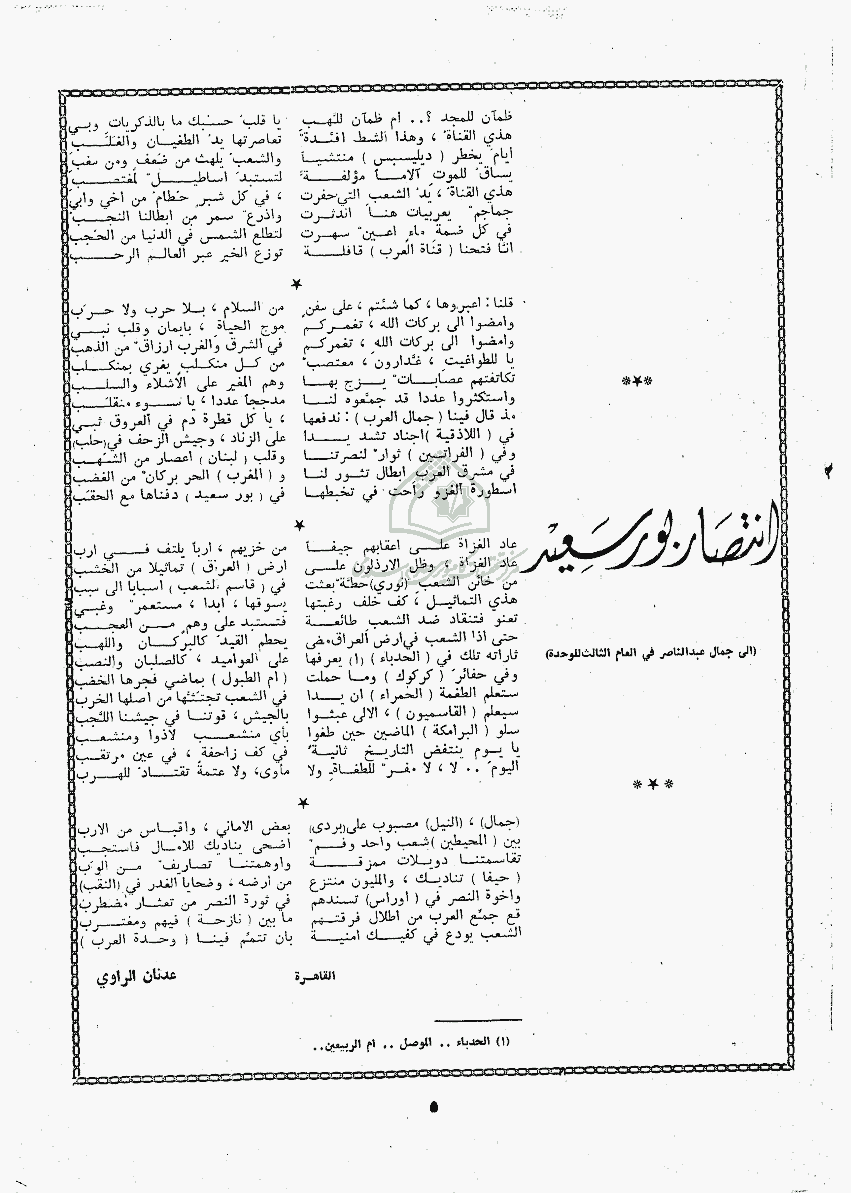 انتصار بور سعيد
(الى جمال عبدالناصر في العام الثالث للوحدة)
ظمآن للمجد ؟.. أم ظمآن للهب يا قلب حسبك ما بالذكريات وبي
هذي القناة ، وهذا الشط أفئدة تعاصرتها يد الطغيان والغلب
أيام يخطر ( ديليسبس ) منتشياً والشعب يلهث من ضعف ومن سغب
يساق للموت آلاماً مؤلفة لتستبد أساطيل لمغتصب
هذي القناة ، يد الشعب التي حفرت ، في كل شبر حطام من أخي وأبي
جماجم يعربيات هنا اندثرت وأذرع سمر من أبطالنا النجب
في كل ضمة ماء أعين سهرت لتطلع الشمس في الدنيا من الحجب
انا فتحنا ( قناة العرب ) قافلة توزع الخير عبر العالم الرحب
★
قلنا : اعبروها ، كما شئتم ، على سفن من السلام ، بلا حرب ولا حرب
وامضوا الى بركات الله ، تغمركم موج الحياة ، بايمان وقلب نبي
وامضوا الى بركات الله ، تغمركم في الشرق والغرب أرزاق من الذهب
يا للطواغيت ، غدارون ، معتصب من كل منكلب يغري بمنكلب
تكاتفتهم عصابات يزج بها وهم المغير على الأشلاء والسلب
واستكثروا عددا قد جمعوه لنا مدججاً عددا ، يا سوء منقلب
مذ قال فينا ( جمال العرب ) : ندفعها ، يا كل قطرة دم في العروق ثبي
في ( اللاذقية ) أجناد تشد يدا على الزناد ، وجيش الزحف في (حلب)
وفي ( الفراتين ) ثوار لنصرتنا وقلب ( لبنان ) اعصار من الشهب
في مشرق العرب أبطال تثور لنا و ( المغرب ) الحر بركان من الغضب
أسطورة الغزو راحت في تخبطها في ( بور سعيد ) دفناها مع الحقب
★
عاد الغزاة على أعقابهم جيفاً من خزيهم ، أرباً يلتف في أرب
عاد الغزاة ، وظل الأرذلون على أرض ( العراق ) تماثيلا من الخشب
من خائن الشعب (نوري) خطة بعثت في ( قاسم الشعب ) أسبابا الى سبب
هذي التماثيل ، كف خلف رغبتها يسوقها ، أبدا ، مستعمر وغبي
تعنو فتنقاد ضد الشعب طائعة فتستبد على وهم من العجب
حتى اذا الشعب في أرض العراق مضى يحطم القيد كالبركان واللهب
ثاراته تلك في ( الحدباء ) (١) يعرفها على العواميد ، كالصلبان والنصب
وفي حفائر ( كركوك ) وما حملت ( أم الطبول ) بماضي فجرها الخضب
ستعلم الطغمة ( الحمراء ) ان يدا في الشعب تجتثها من أصلها الخرب
سيعلم ( القاسميون ) ، الألى عبثوا بالجيش ، قوتنا في جيشنا اللجب
سلو ( البرامكة ) الماضين حين طغوا بأي منشعب لاذوا ومنشعب
يا يوم ينتفض التاريخ ثانية في كف زاحفة ، في عين مرتقب
اليوم .. لا ، لا مفر للطغاة ولا مأوى، ولا عتمة تقتاد للهرب
★
(جمال) ، (النيل) مصبوب على (بردى) بعض الأماني ، وأقباس من الأرب
بين ( المحيطين ) شعب واحد وفم أضحى يناديك للآمال فاستجب
تقاسمتنا دويلات ممزقة وأوهمتنا تصاريف من النوب
( حيفا ) تناديك ، والمليون منتزع من أرضه ، وضحايا الغدر في (النقب)
وأخوة النصر في ( أوراس ) تسندهم في ثورة النصر من تعشار مضطرب
قع جمع العرب من أطلال فرقتهم ما بين ( نازحة ) فيهم ومغترب
الشعب يودع في كفيك أمنية بأن تتم فينا ( وحدة العرب )
القاهرة عدنان الراوي
(١) الحدباء .. الموصل .. أم الربيعين..
٥